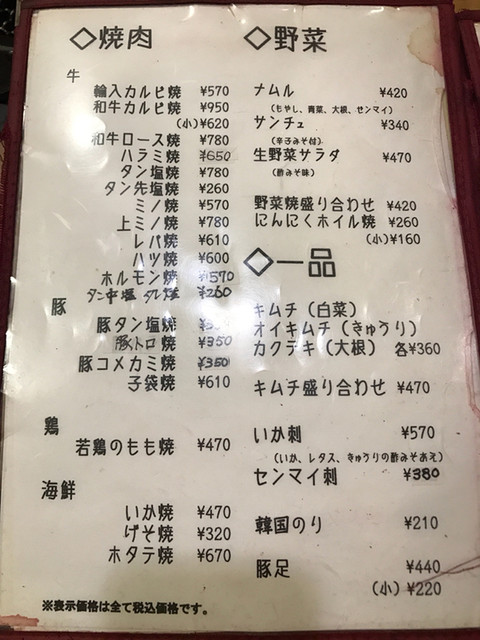 ◇焼肉
牛
輸入カルビ焼 ¥570
和牛カルビ焼 ¥950
(小)¥620
和牛ロース焼 ¥780
ハラミ焼 ¥650
タン塩焼 ¥780
タン先塩焼 ¥260
ミノ焼 ¥570
上ミノ焼 ¥780
レバ焼 ¥610
ハツ焼 ¥600
ホルモン焼 ¥570
¥260
豚
豚タン塩焼
豚トロ焼 ¥350
豚コメカミ焼 ¥350
子袋焼 ¥610
鶏
若鶏のもも焼 ¥470
海鮮
いか焼 ¥470
げそ焼 ¥320
ホタテ焼 ¥670
※表示価格は全て税込価格です。
◇野菜
ナムル ¥420
(もやし、青菜、大根、ゼンマイ)
サンチュ ¥340
(辛子みそ付)
生野菜サラダ ¥470
(酢みそ味)
野菜焼盛り合わせ ¥420
にんにくホイル焼 ¥260
(小)¥160
◇一品
キムチ（白菜）
オイキムチ（きゅうり）
カクテキ（大根） 各¥360
キムチ盛り合わせ ¥470
いか刺 ¥570
(いか、レタス、きゅうりの酢みそあえ)
センマイ刺 ¥380
韓国のり ¥210
豚足 ¥440
(小)¥220